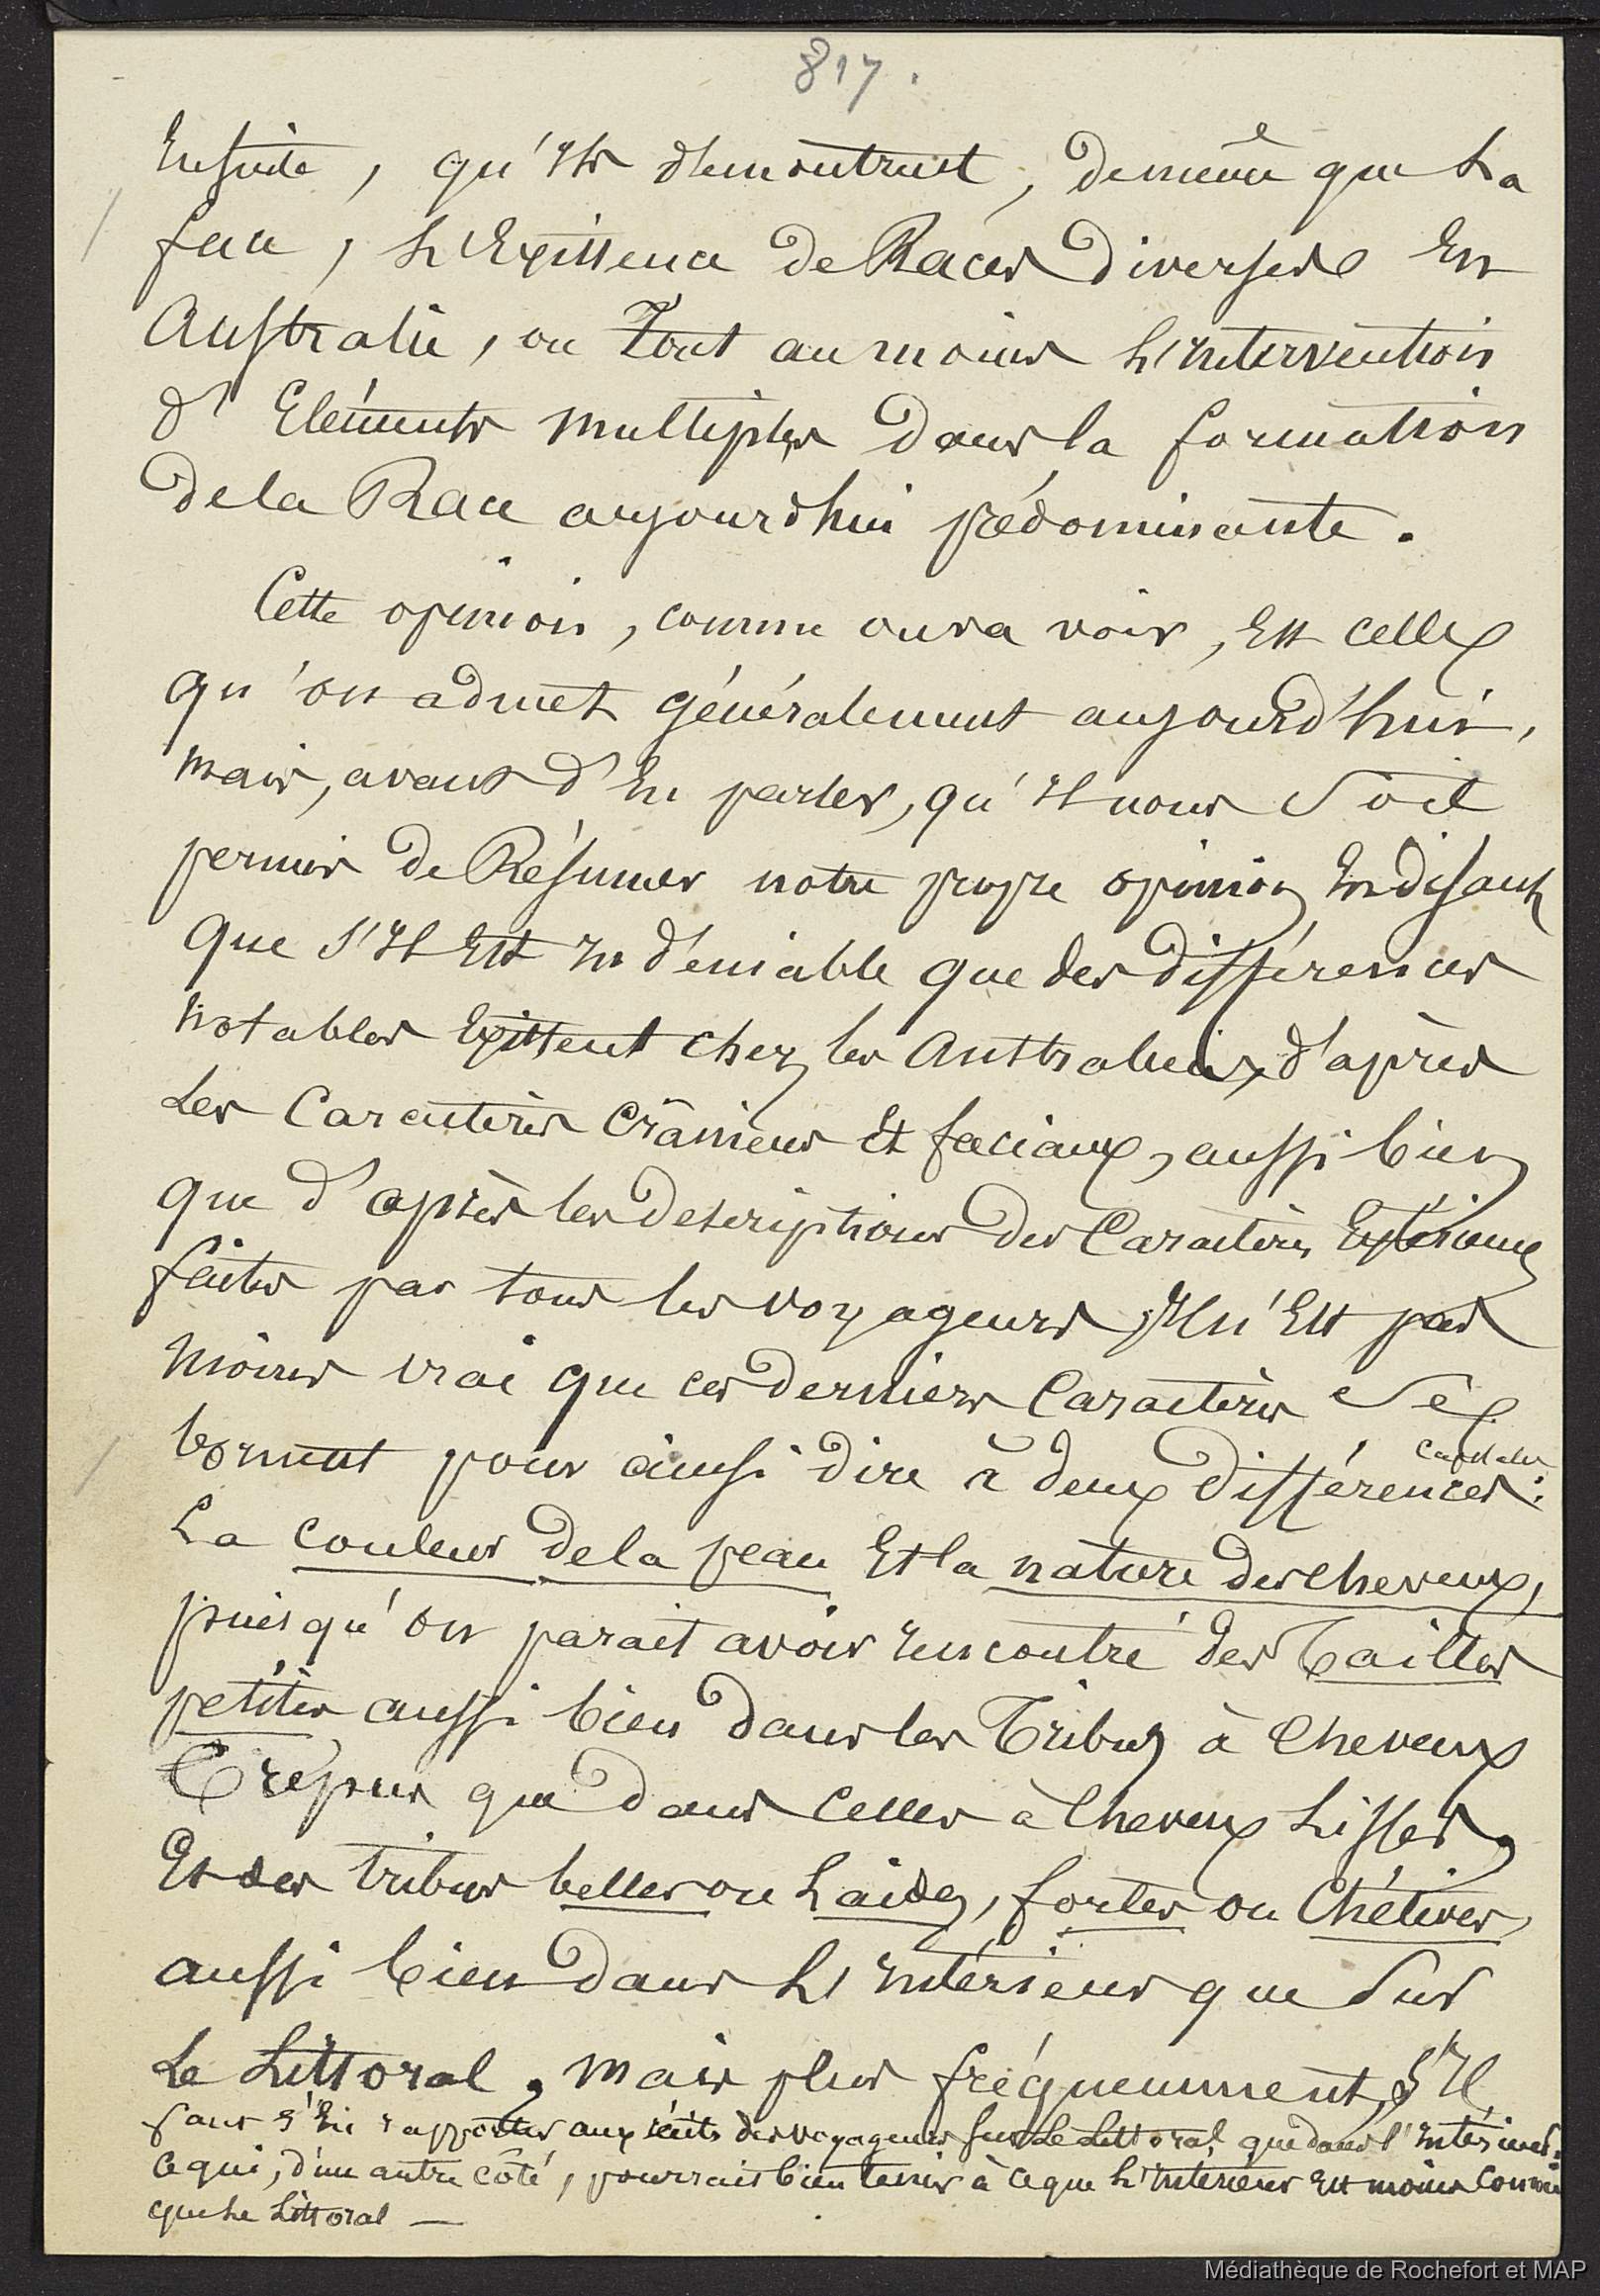 817.
Ensuite, qu'Ils démontrent, de même que La
face, L'Existence de Races diverses En
Australie, ou Tout au moins L'Intervention
d'Eléments multiples dans la formation
de la Race aujourdhui prédominante.
Cette opinion, comme on va voir, Est celle
qu'on admet généralement aujourd'hui,
mais, avant d'En parler, qu'Il nous Soit
permis de Résumer notre propre opinion En disant
que S'Il Est Indéniable que des différences
notables Existent chez les Australiens, d'après
Les Caractères Crâniens Et faciaux, aussi bien
que d'après les descriptions des Caractères Extérieurs
faites par tous les voyageurs, Il n'Est pas
moins vrai que ces derniers Caractères Se
bornent pour ainsi dire à deux différences capitales :
La couleur de la peau Et la nature des cheveux,
puisqu'on parait avoir rencontré des Tailles
petites aussi bien dans les Tribus à Cheveux
Crépus que dans Celles à Cheveux Lisses,
Et des tribus belles ou Laides, fortes ou Chétives,
aussi bien dans L'Intérieur que Sur
Le Littoral, mais plus fréquemment, S'Il
faut S'En rapporter aux récits des voyageurs sur Le Littoral, que dans l'Intérieur.
Ce qui, d'un autre côté, pourrait bien tenir à ce que L'Intérieur Est moins Connu
que Le Littoral —
Médiathèque de Rochefort et MAP